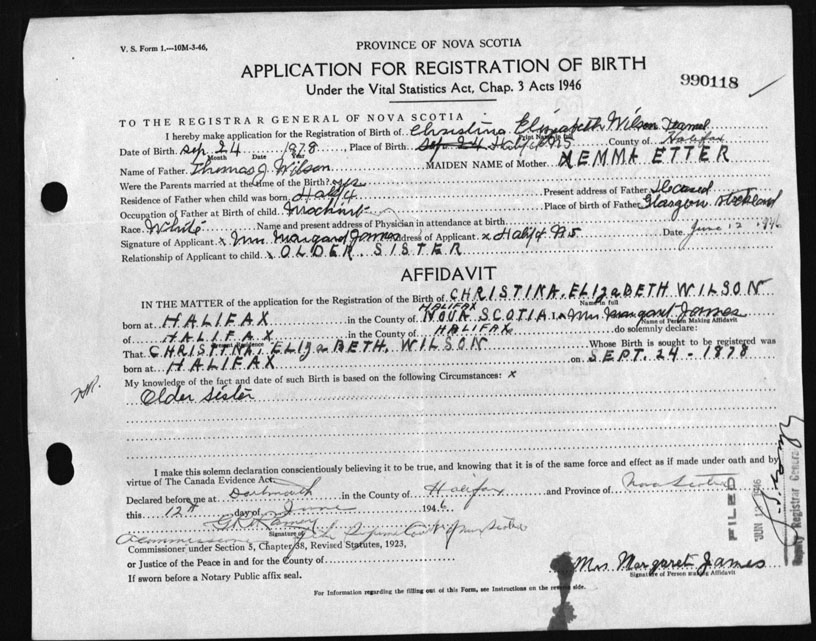 V. S. Form 1.—10M-3-46.
PROVINCE OF NOVA SCOTIA
APPLICATION FOR REGISTRATION OF BIRTH
990118
Under the Vital Statistics Act, Chap. 3 Acts 1946
TO THE REGISTRAR GENERAL OF NOVA SCOTIA
I hereby make application for the Registration of Birth of Christina Elizabeth Wilson
Print Name in full
Date of Birth Sep 24 1878, Place of Birth Sep 24 Halifax N S County of Halifax
Month Date Year
Name of Father Thomas J. Wilson MAIDEN NAME of Mother EMMA ETTER
Were the Parents married at the time of the Birth? yes
Residence of Father when child was born Present address of Father
Occupation of Father at Birth of child Place of birth of Father Glasgow
Race White Name and present address of Physician in attendance at birth
Signature of Applicant x Mrs. Margaret James Address of Applicant x Date June 12 1946
Relationship of Applicant to child x OLDER SISTER
AFFIDAVIT
IN THE MATTER of the application for the Registration of Birth of CHRISTINA ELIZaBETH WILSON
Name in full
HALIFAX
born at HALIFAX in the County of NOVA SCOTIA I, Mrs Margaret James
Name of Person Making Affidavit
of HALIFAX in the County of HALIFAX do solemnly declare:
Present Residence
That CHRISTINA ELIZaBETH WILSON Whose Birth is sought to be registered was
born at HALIFAX on SEPT. 24 - 1878
My knowledge of the fact and date of such Birth is based on the following Circumstances: x
Older Sister
I make this solemn declaration conscientiously believing it to be true, and knowing that it is of the same force and effect as if made under oath and by
virtue of The Canada Evidence Act.
Declared before me at Dartmouth in the County of Halifax and Province of Nova Scotia
this 12th day of June 1946
Signature of
A Commissioner of the Supreme Court of Nova Scotia
Commissioner under Section 5, Chapter 38, Revised Statutes, 1923,
or Justice of the Peace in and for the County of
If sworn before a Notary Public affix seal.
Mrs Margaret James
Signature of Person Making Affidavit
For Information regarding the filling out of this Form, see Instructions on the reverse side.
FILED
JUN 1946
Deputy Registrar General